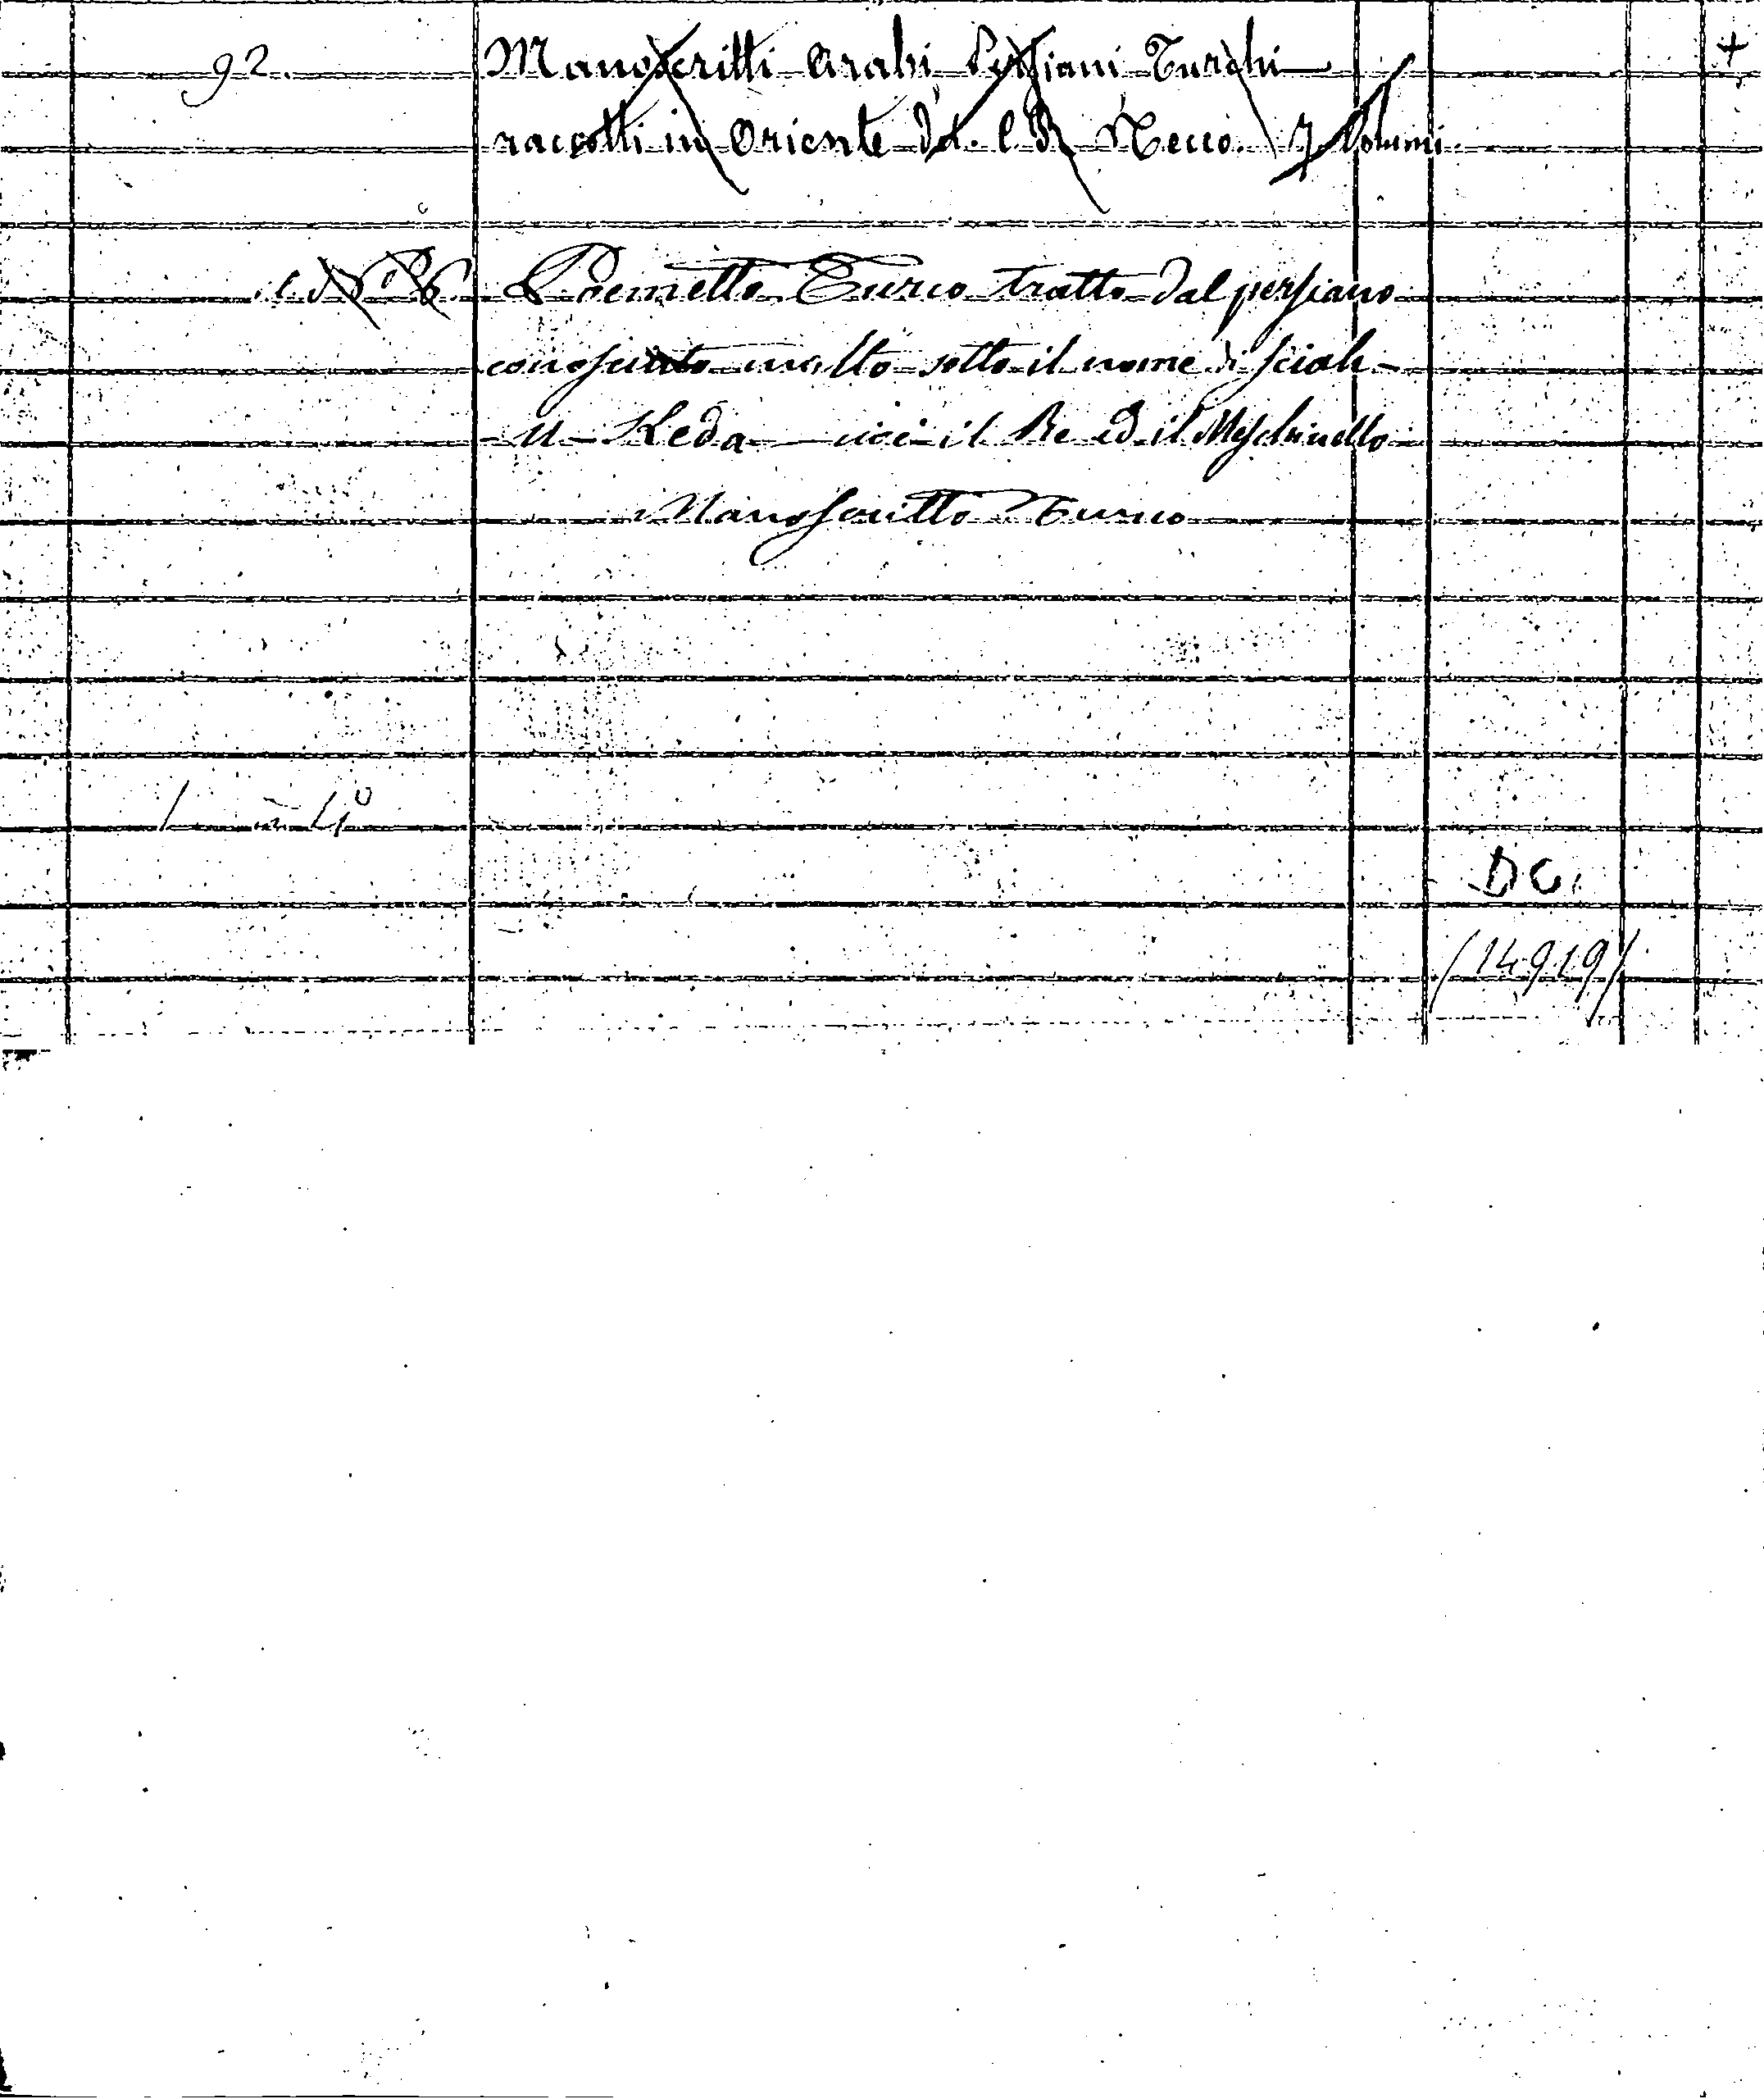 92. Manoscritti Arabi Persiani Turchi +
raccolti in Oriente da C. R. Necco. 7 Volumi.
Poemetto Turco tratto dal persiano
conosciuto molto sotto il nome di Sciah-
u-Keda cioè il Re ed il Meschinello
Manoscritto Turco
1 in 4°
DC.
(14919)